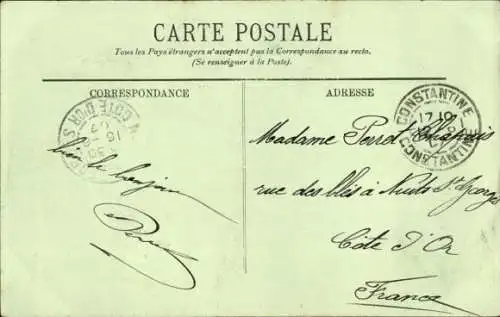 CARTE POSTALE
Tous les Pays étrangers n'acceptent pas la Correspondance au recto.
(Se renseigner à la Poste).
CORRESPONDANCE
ADRESSE
CÔTE D'OR
CONSTANTINE
CONSTANTINE
Madame Perrot Chapuis
rue des blés à Nuits St Georges
Côte d'Or
France
bonjour